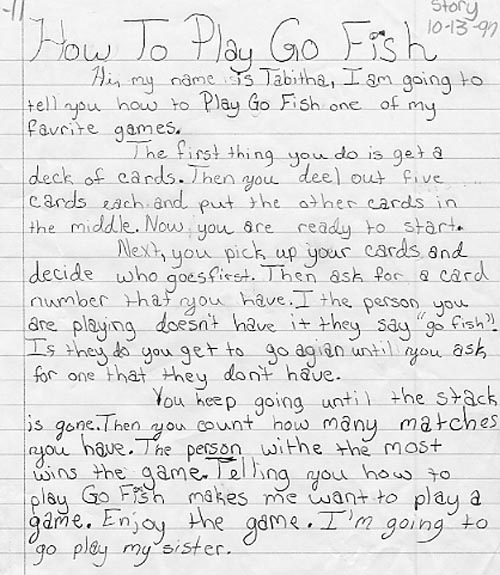 -11
Story
10-13-97
How To Play Go Fish
Hi, my name is Tabitha, I am going to
tell you how to Play Go Fish one of my
favrite games.
The first thing you do is get a
deck of cards. Then you deel out five
cards each and put the other cards in
the middle. Now you are ready to start.
Next, you pick up your cards and
decide who goes first. Then ask for a card
number that you have. I the person you
are playing doesn't have it they say "go fish"!
Is they do you get to go agian until you ask
for one that they don't have.
You keep going until the stack
is gone. Then you count how many matches
you have. The person withe the most
wins the game. Telling you how to
play Go Fish makes me want to play a
game. Enjoy the game. I'm going to
go play my sister.